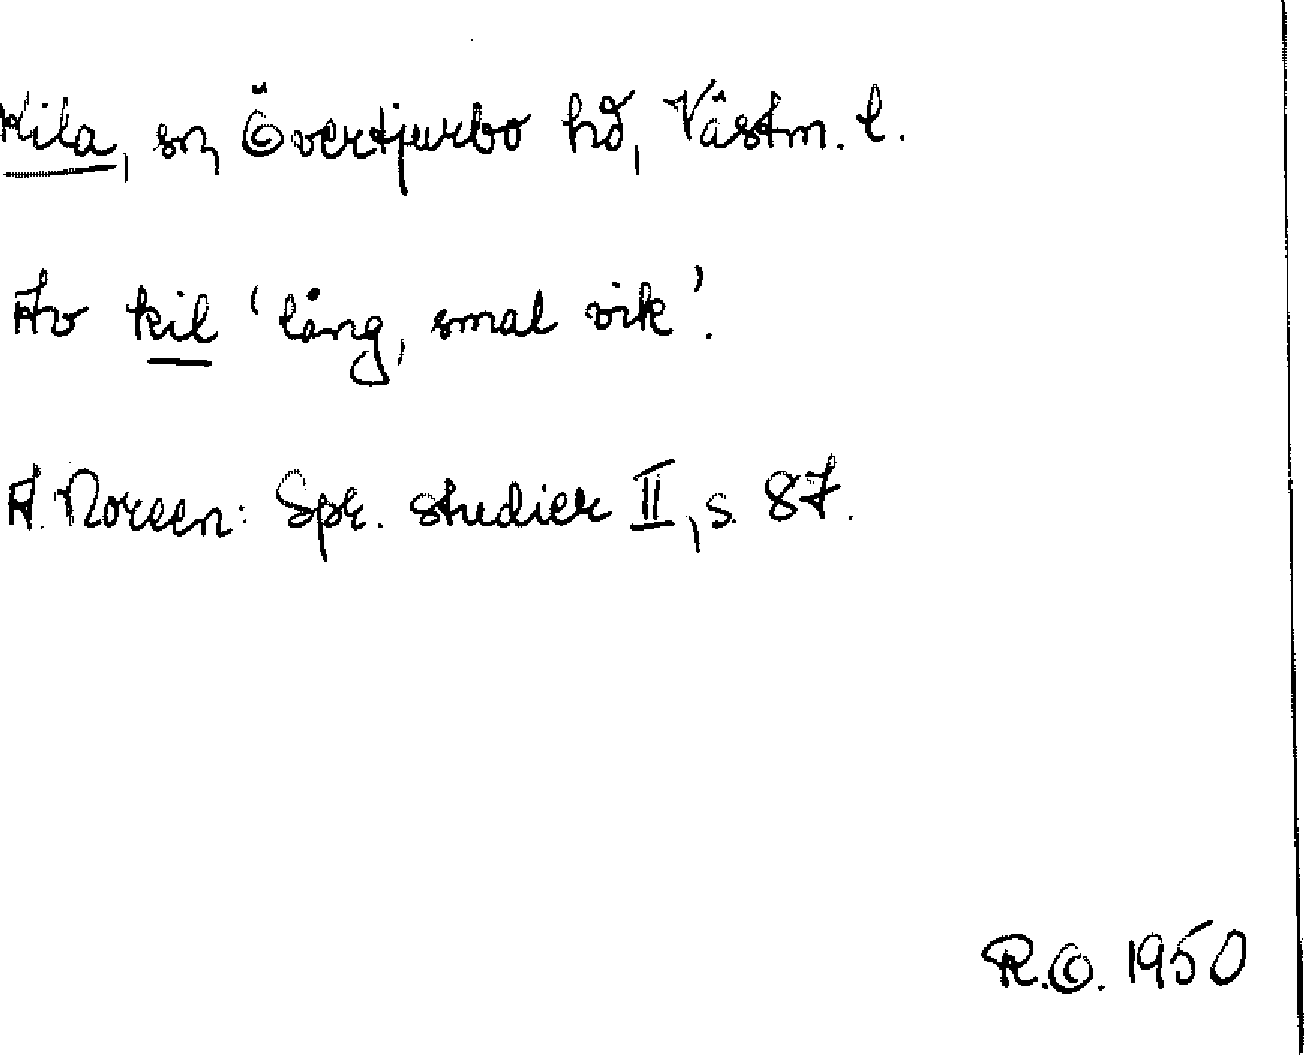 Kila, sn, Övertjurbo hd, Västm. l.
Av kil 'lång, smal vik'.
A. Noreen: Spr. studier II, s. 87.
R.O. 1950